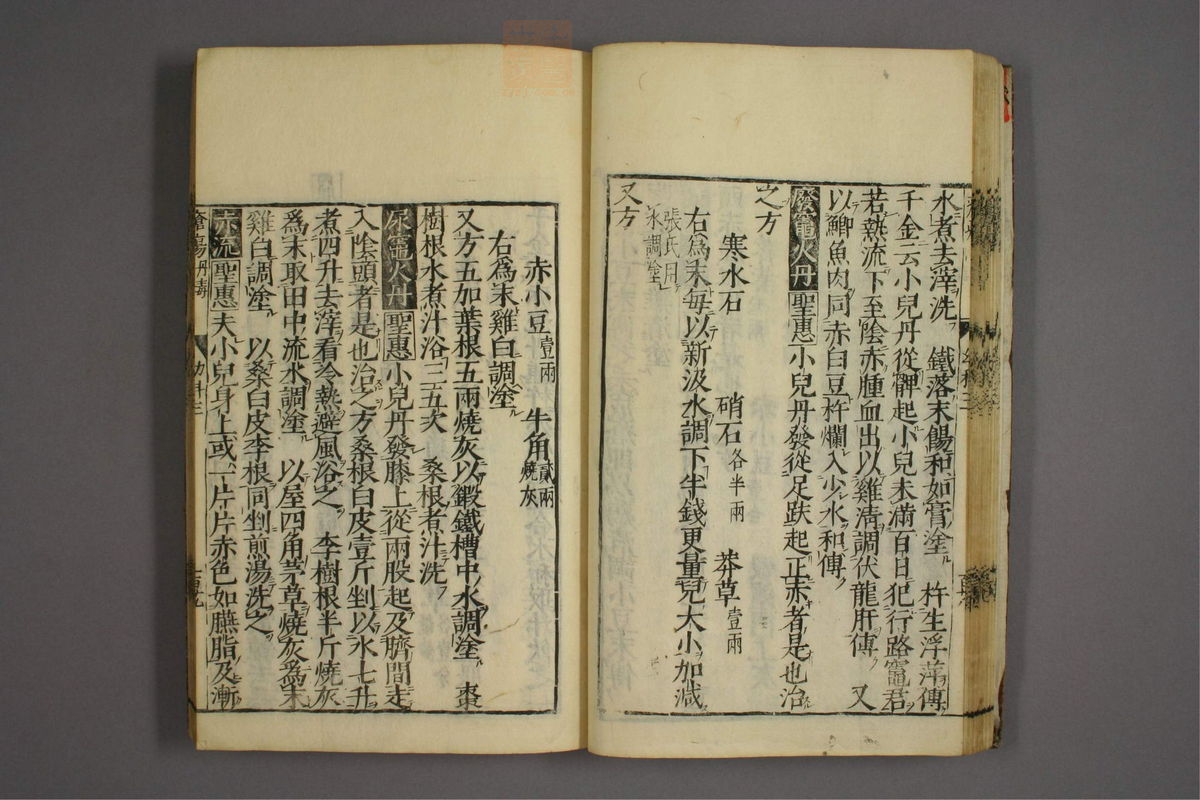 水煮去滓洗　鐵落末餳和如膏塗　杵生浮萍傳
千金云小兒丹從髀起小兒未滿百日犯行路竈君
若熱流下至陰赤腫血出以雞清調伏龍肝傳　又
以鯽魚肉同赤白豆杵爛入少水和傳
廢竈火丹聖惠小兒丹發從足趺起正赤者是也治
之方
寒水石　硝石各半兩　莽草壹兩
右爲末每以新汲水調下半錢更量兒大小加減
張氏用水調塗
又方
赤小豆壹兩　牛角貳兩燒灰
右爲末雞白調塗
又方五加葉根五兩燒灰以鍛鐵槽中水調塗　棗
樹根水煮汁浴三五次　桑根煮汁洗
尿竈火丹聖惠小兒丹發膝上從兩股起及臍間走
入陰頭者是也治之方桑根白皮壹斤剉以水七升
煮四升去滓看冷熱避風浴之　李樹根半斤燒灰
爲末取田中流水調塗　以屋四角茅草燒灰爲末
雞白調塗　以桑白皮李根同剉煎湯洗之
赤流聖惠夫小兒身上或一片片赤色如臙脂及漸
瘡瘍丹毒　幼科三